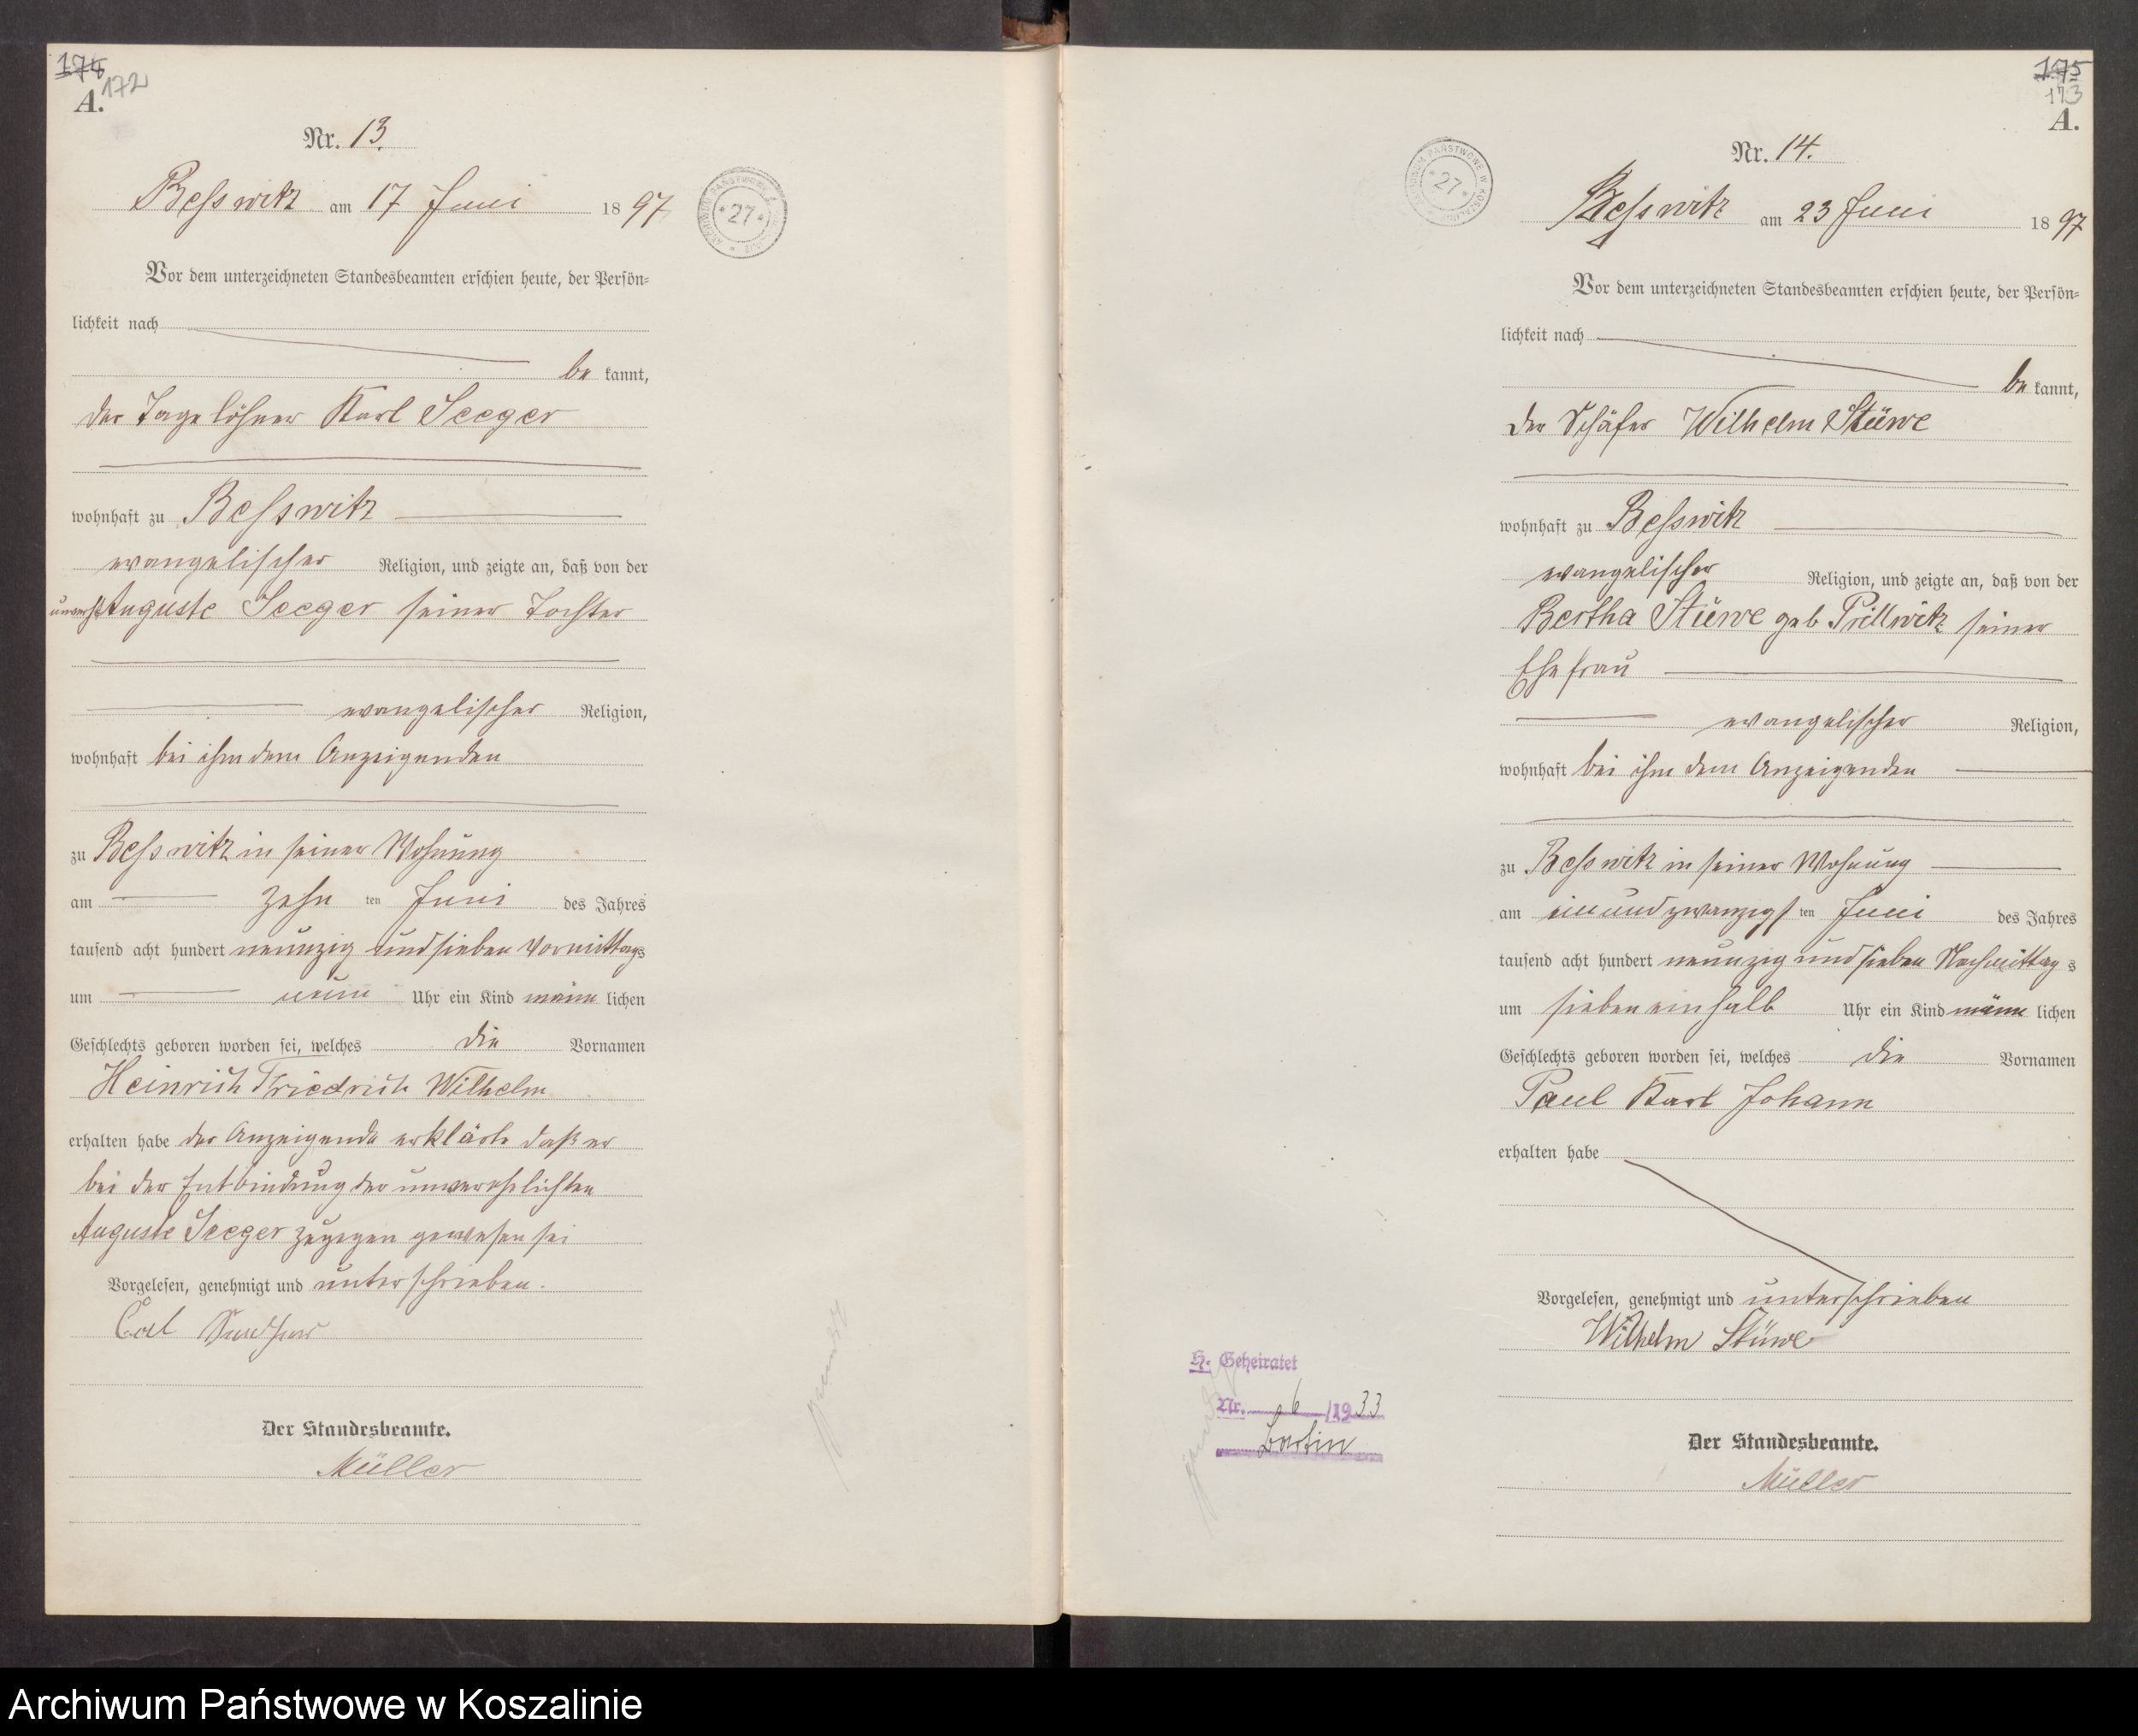 174
172
A.
Nr. 13.
Besswitz am 17 Juni 1897
Vor dem unterzeichneten Standesbeamten erschien heute, der Persön=
lichkeit nach
be kannt,
der Tagelöhner Karl Seeger
wohnhaft zu Besswitz
evangelischer Religion, und zeigte an, daß von der
unvereh Auguste Seeger seiner Tochter
evangelischer Religion,
wohnhaft bei ihm dem Anzeigenden
zu Besswitz in seiner Wohnung
am zehn ten Juni des Jahres
tausend acht hundert neunzig und sieben Vormittags
um neun Uhr ein Kind männ lichen
Geschlechts geboren worden sei, welches die Vornamen
Heinrich Friedrich Wilhelm
erhalten habe der Anzeigende erklärte daß er
bei der Entbindung der unverehelichten
Auguste Seeger zugegen gewesen sei
Vorgelesen, genehmigt und unterschrieben.
Carl
Der Standesbeamte.
Müller
ARCHIWUM PAŃSTWOWE W KOSZALINIE
* 27 *
175
173
A.
Nr. 14.
Besswitz am 23 Juni 1897
Vor dem unterzeichneten Standesbeamten erschien heute, der Persön=
lichkeit nach
be kannt,
der Schäfer Wilhelm Stüwe
wohnhaft zu Besswitz
evangelischer Religion, und zeigte an, daß von der
Bertha Stüwe geb Prillwitz seiner
Ehefrau
evangelischer Religion,
wohnhaft bei ihm dem Anzeigenden
zu Besswitz in seiner Wohnung
am einundzwanzigs ten Juni des Jahres
tausend acht hundert neunzig und sieben Nachmittag s
um sieben ein halb Uhr ein Kind männ lichen
Geschlechts geboren worden sei, welches die Vornamen
Paul Karl Johann
erhalten habe
Vorgelesen, genehmigt und unterschrieben
Wilhelm Stüwe
Der Standesbeamte.
Müller
ARCHIWUM PAŃSTWOWE W KOSZALINIE
* 27 *
H. Geheiratet
Nr. 6 /1933
Bartin
Archiwum Państwowe w Koszalinie